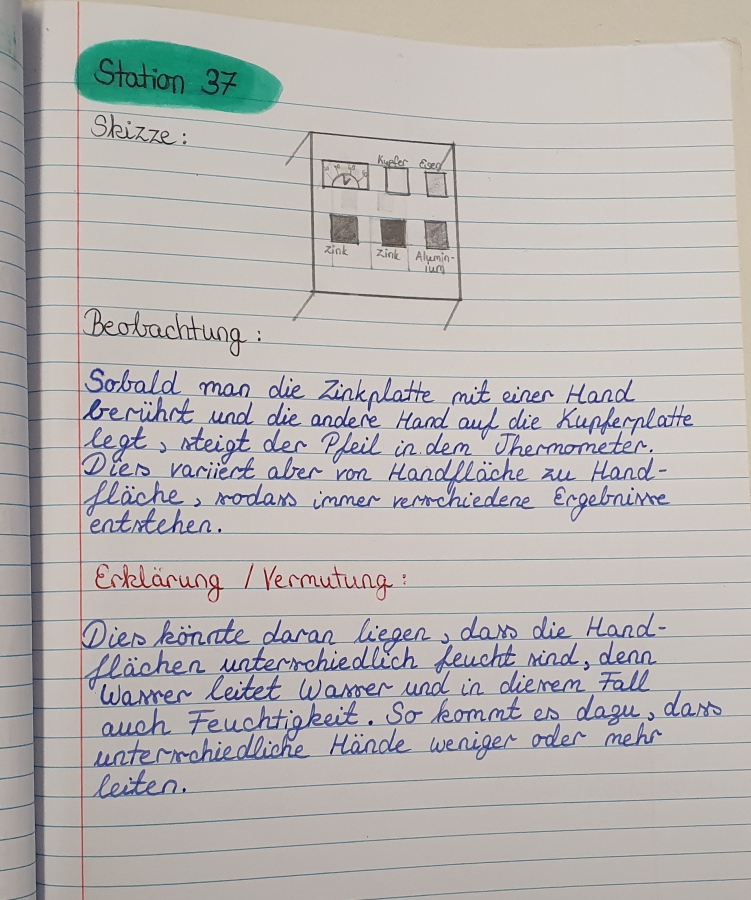 Station 37
Skizze:
Kupfer Eisen
Zink Zink Alumin-
ium
Beobachtung:
Sobald man die Zinkplatte mit einer Hand
berührt und die andere Hand auf die Kupferplatte
legt, steigt der Pfeil in dem Thermometer.
Dies variiert aber von Handfläche zu Hand-
fläche, sodass immer verschiedene Ergebnisse
entstehen.
Erklärung / Vermutung:
Dies könnte daran liegen, dass die Hand-
flächen unterschiedlich feucht sind, denn
Wasser leitet Wasser und in diesem Fall
auch Feuchtigkeit. So kommt es dazu, dass
unterschiedliche Hände weniger oder mehr
leiten.